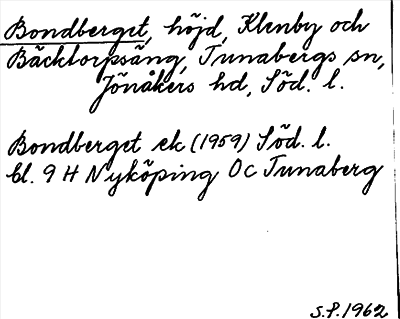 Bondberget, höjd, Klenby och
Bäcktorpsäng, Tunabergs sn,
Jönåkers hd, Söd. l.
Bondberget ek (1959) Söd. l.
bl. 9 H Nyköping Oc Tunaberg
S.P. 1962